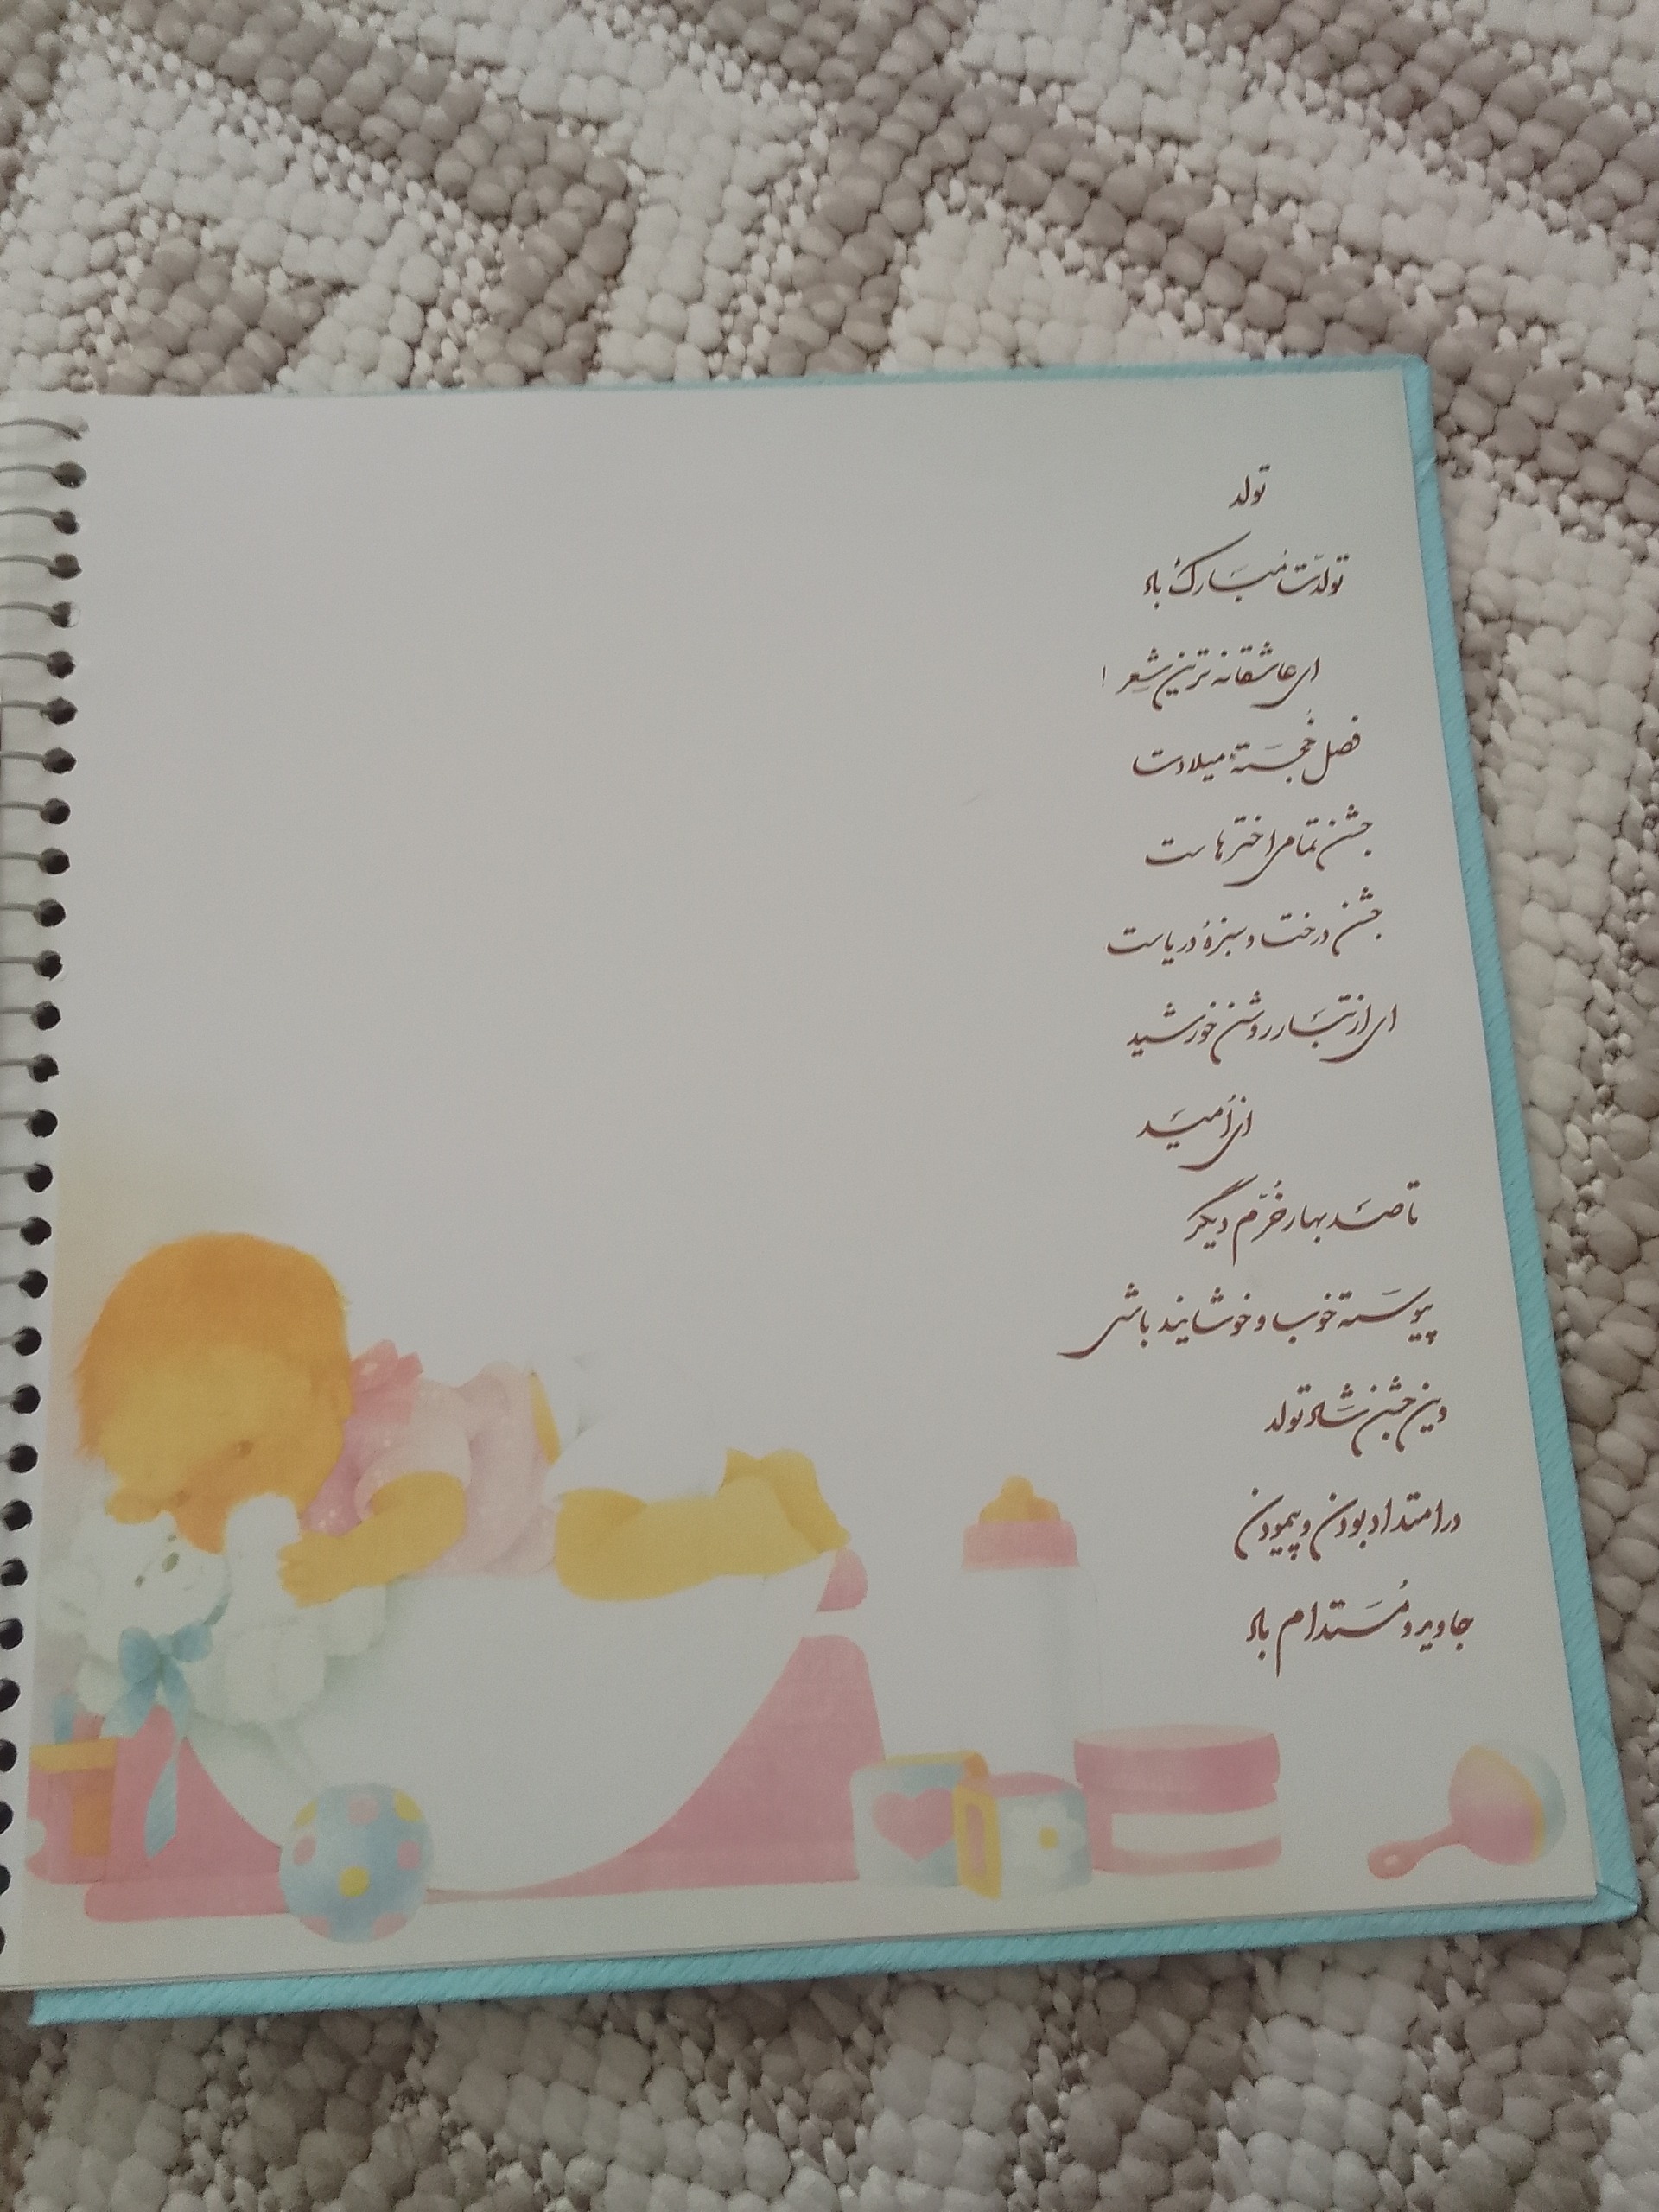 تولد
تولدّت مُبَارکْ باد
ای عاشقانه ترین شِعر !
فصل خُجَستهٔ میلادت
جشن تمامی اخترهاست
جشن درخت و سبزهٔ دریاست
ای از تَبَار روشن خورشید
ای اُمیَد
تا صَد بهار خُرّم دیگر
پیوسَته خوب و خوشایند باشی
وین جشن شَاد تولد
در امتداد بودن و پیمودن
جاوید و مُسَتدام باد